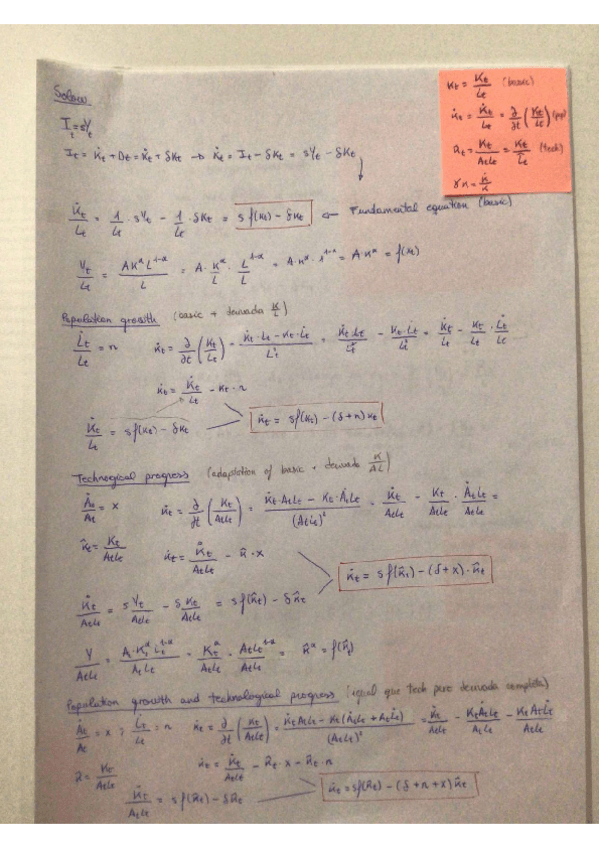 Solow
I_t = sY_t
I_t = K̇_t + D_t = K̇_t + δK_t → K̇_t = I_t − δK_t = sY_t − δK_t
K̇_t/L_t = 1/L_t · sY_t − 1/L_t · δK_t = s f(k_t) − δk_t ← Fundamental equation (basic)
Y_t/L_t = AK^α L^1-α/L = A · K^α/L · L^1-α/L = A·k^α · 1^1-α = A·k^α = f(k_t)
Population growth (basic + derivada K/L)
L̇_t/L_t = n k̇_t = ∂/∂t (K_t/L_t) = K̇_t·L_t − K_t·L̇_t/L_t² = K̇_t·L_t/L_t² − K_t·L̇_t/L_t² = K̇_t/L_t − K_t/L_t · L̇_t/L_t
k̇_t = K̇_t/L_t − k_t·n
K̇_t/L_t = s f(k_t) − δk_t k̇_t = s f(k_t) − (δ+n) k_t
Technogical progress (adaptation of basic + derivada K/AL)
Ȧ_t/A_t = x k̇_t = ∂/∂t (K_t/A_tL_t) = K̇_t·A_tL_t − K_t·Ȧ_tL_t/(A_tL_t)² = K̇_t/A_tL_t − K_t/A_tL_t · Ȧ_tL_t/A_tL_t =
k̂_t = K_t/A_tL_t k̇_t = K̇_t/A_tL_t − k̂·x
k̇_t = s f(k̂_t) − (δ+x)·k̂_t
K̇_t/A_tL_t = s Y_t/A_tL_t − δ K_t/A_tL_t = s f(k̂_t) − δk̂_t
Y/A_tL_t = A·K_t^α L_t^1-α/A_tL_t = K_t^α/A_tL_t · A_tL_t^1-α/A_tL_t = k̂^α = f(k̂_t)
Population growth and technological progress (igual que tech pero derivada completa)
Ȧ_t/A_t = x ; L̇_t/L_t = n k̇_t = ∂/∂t (K_t/A_tL_t) = K̇_tA_tL_t − K_t(Ȧ_tL_t + A_tL̇_t)/(A_tL_t)² = K̇_t/A_tL_t − K_tȦ_tL_t/A_tL_t − K_tA_tL̇_t/A_tL_t
k̂ = K_t/A_tL_t k̇_t = K̇_t/A_tL_t − k̂_t·x − k̂_t·n
K̇_t/A_tL_t = s f(k̂_t) − δk̂_t k̇_t = s f(k̂_t) − (δ+n+x) k̂_t
k_t = K_t/L_t (basic)
k̇_t = K̇_t/L_t = ∂/∂t (K_t/L_t) (pop)
k̂_t = K_t/A_tL_t = K_t/L̂_t (tech)
γk = k̇/k